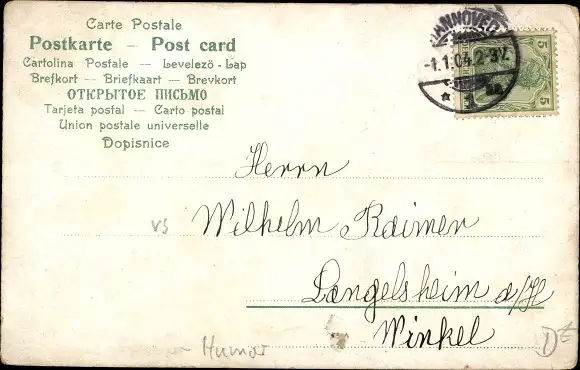 Carte Postale
Postkarte – Post card
Cartolina Postale – Levelező-Lap
Brefkort – Briefkaart – Brevkort
ОТКРЫТОЕ ПИСЬМО
Tarjeta postal – Carto postal
Union postale universelle
Dopisnice
HANNOVER
-1.1.04.2-3V.
* 1
5
5
Herrn
vs
Wilhelm Raimer
Langelsheim a/H
Winkel
Humor